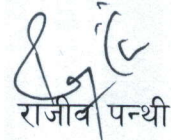 राजीव पन्थी